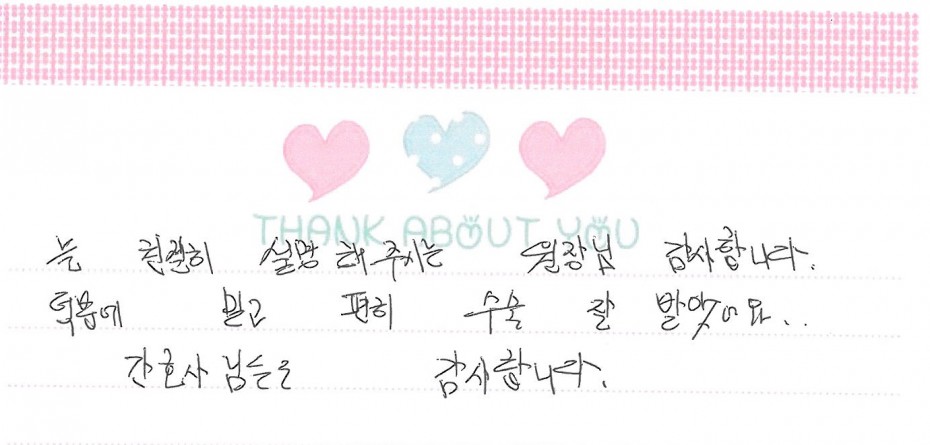 THANK ABOUT YOU
늘 친절히 설명 해 주시는 원장님 감사합니다.
덕분에 믿고 편히 수술 잘 받았어요..
간호사님들도 감사합니다.